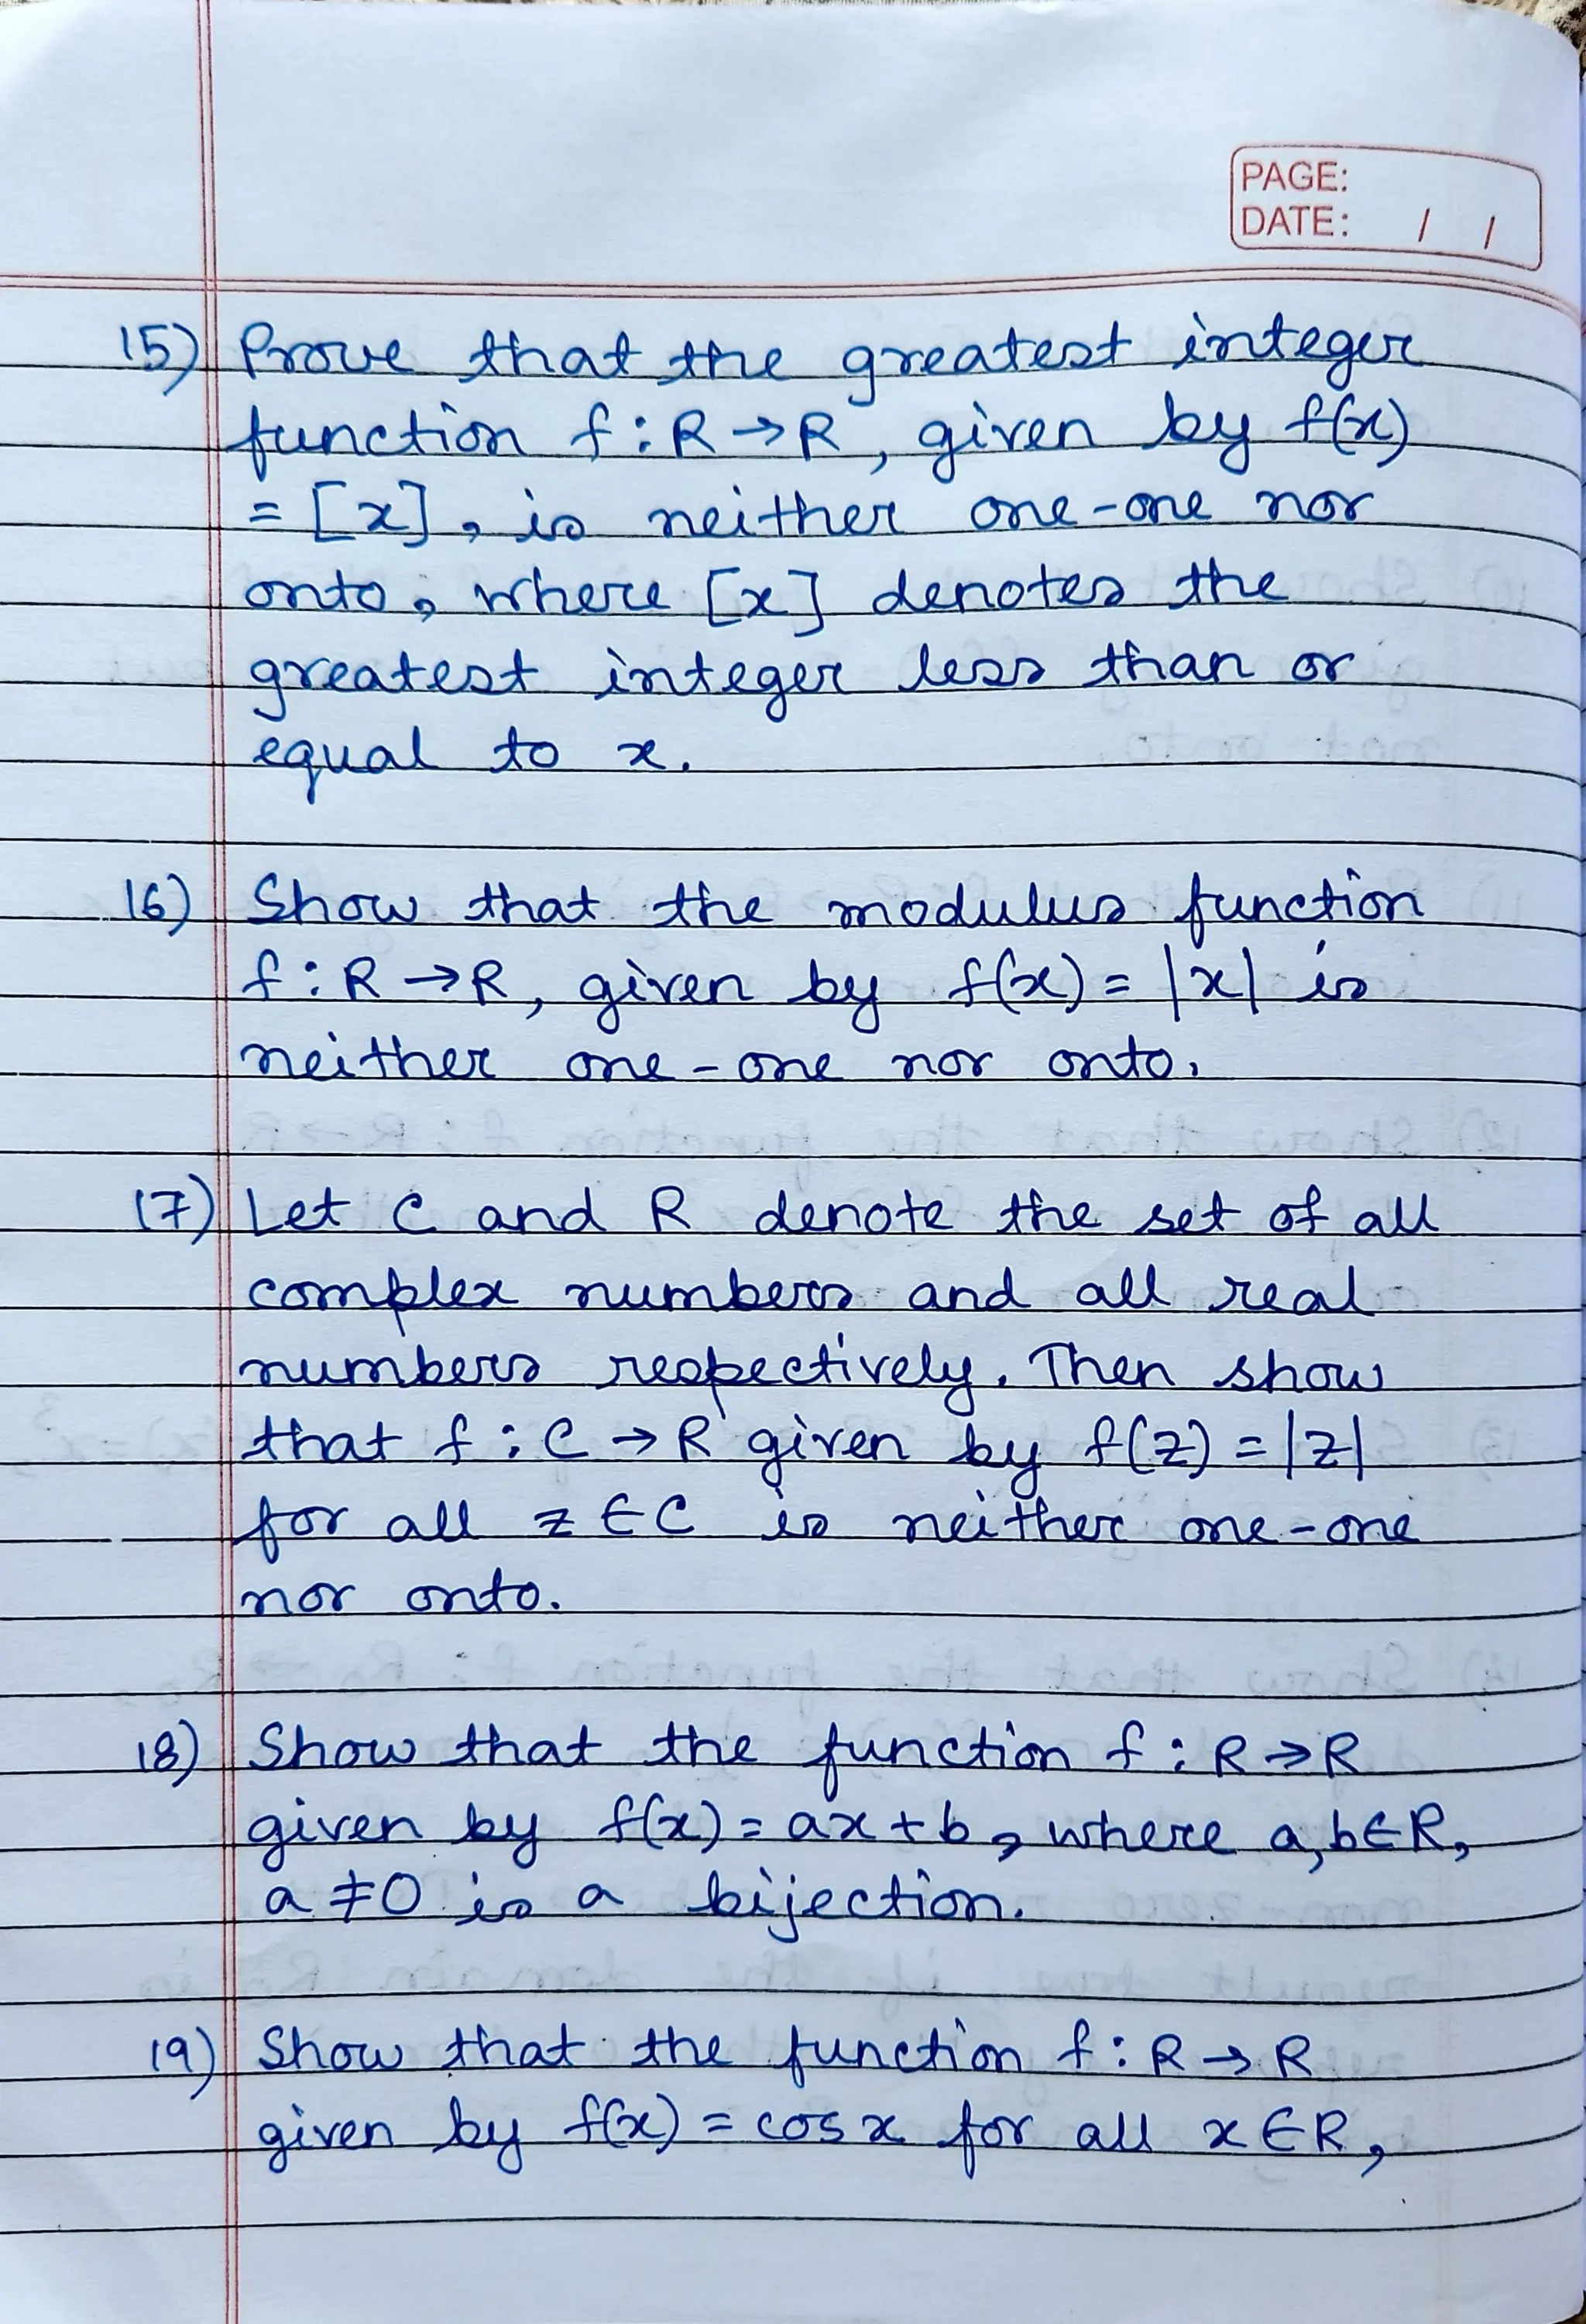 PAGE:
DATE: / /
15) Prove that the greatest integer
function f : R → R, given by f(x)
= [x], is neither one-one nor
onto, where [x] denotes the
greatest integer less than or
equal to x.
16) Show that the modulus function
f : R → R, given by f(x) = |x| is
neither one-one nor onto.
17) Let C and R denote the set of all
complex numbers and all real
numbers respectively. Then show
that f : C → R given by f(z) = |z|
for all z ∈ C is neither one-one
nor onto.
18) Show that the function f : R → R
given by f(x) = ax + b, where a, b ∈ R,
a ≠ 0 is a bijection.
19) Show that the function f : R → R
given by f(x) = cos x for all x ∈ R,